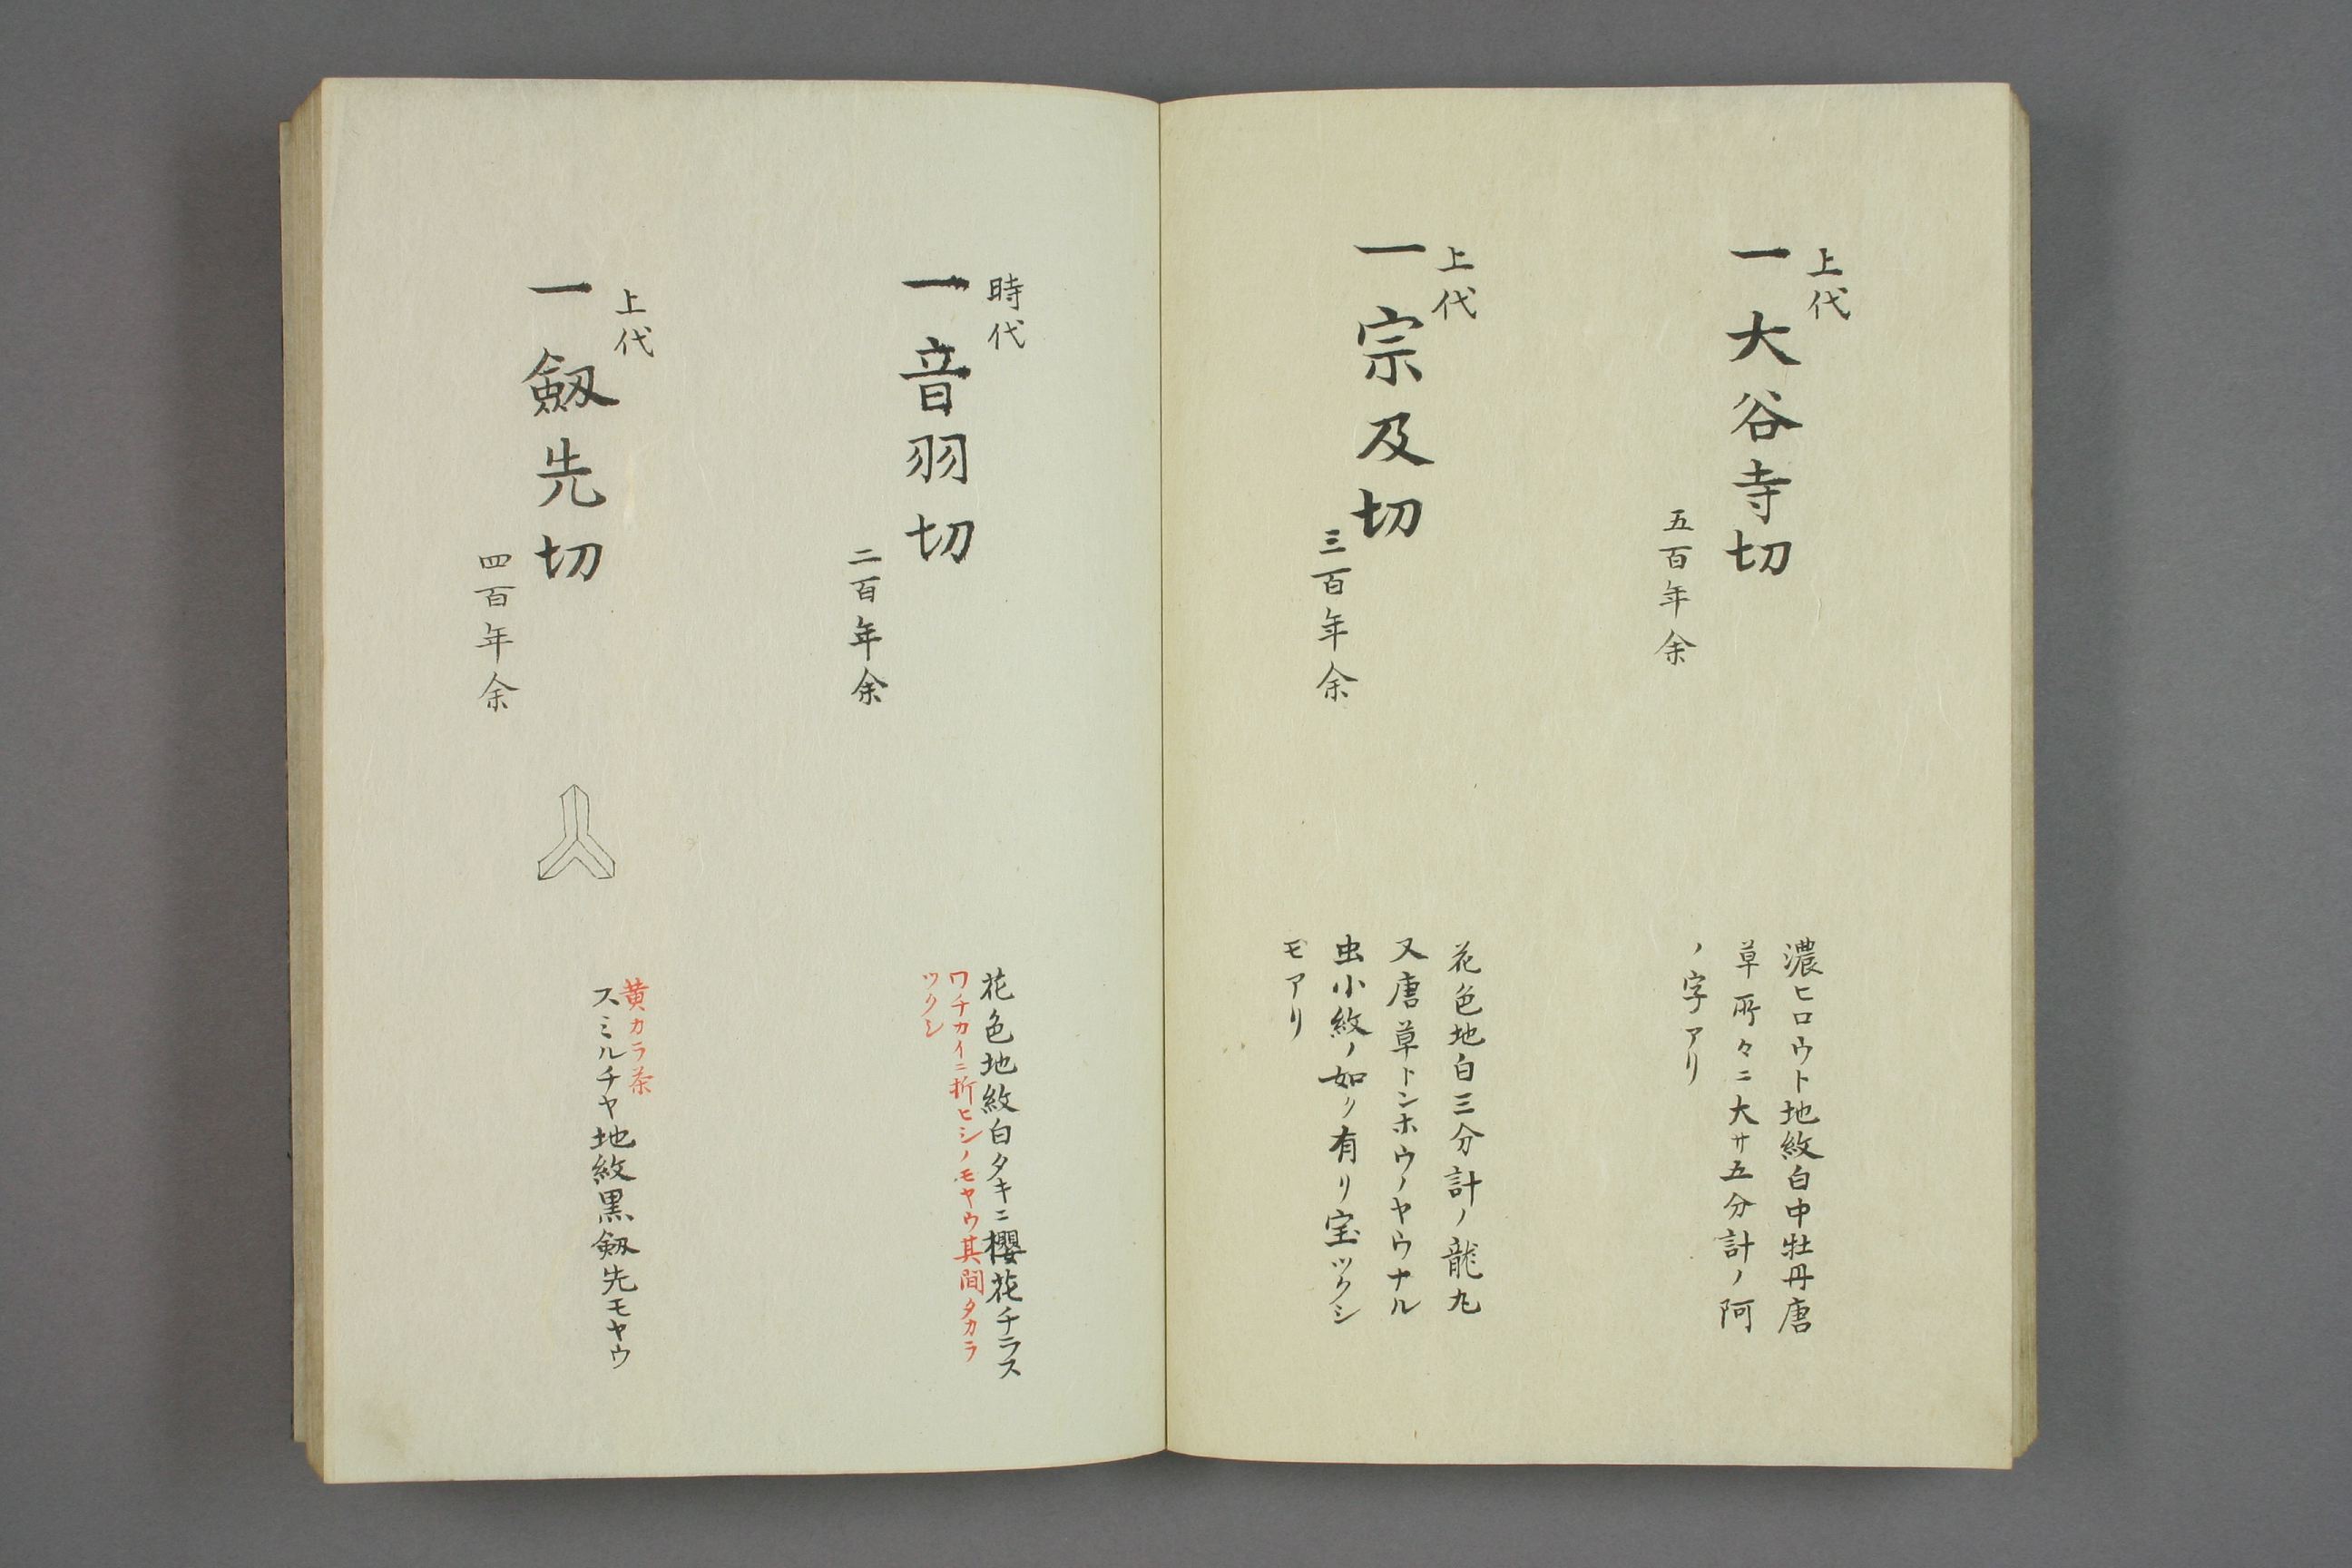 上代
一大谷寺切
五百年余
濃ヒロウト地紋白中牡丹唐
草所々ニ大サ五分計ノ阿
ノ字アリ
上代
一宗及切
三百年余
花色地白三分計ノ龍丸
又唐草トンホウノヤウナル
虫小紋ノ如ク有リ宝ツクシ
モアリ
時代
一音羽切
二百年余
花色地紋白タキニ櫻花チラス
ワチカイニ折ヒシノモヤウ其間タカラ
ツクシ
上代
一劔先切
四百年余
黄カラ茶
スミルチヤ地紋黒劔先モヤウ